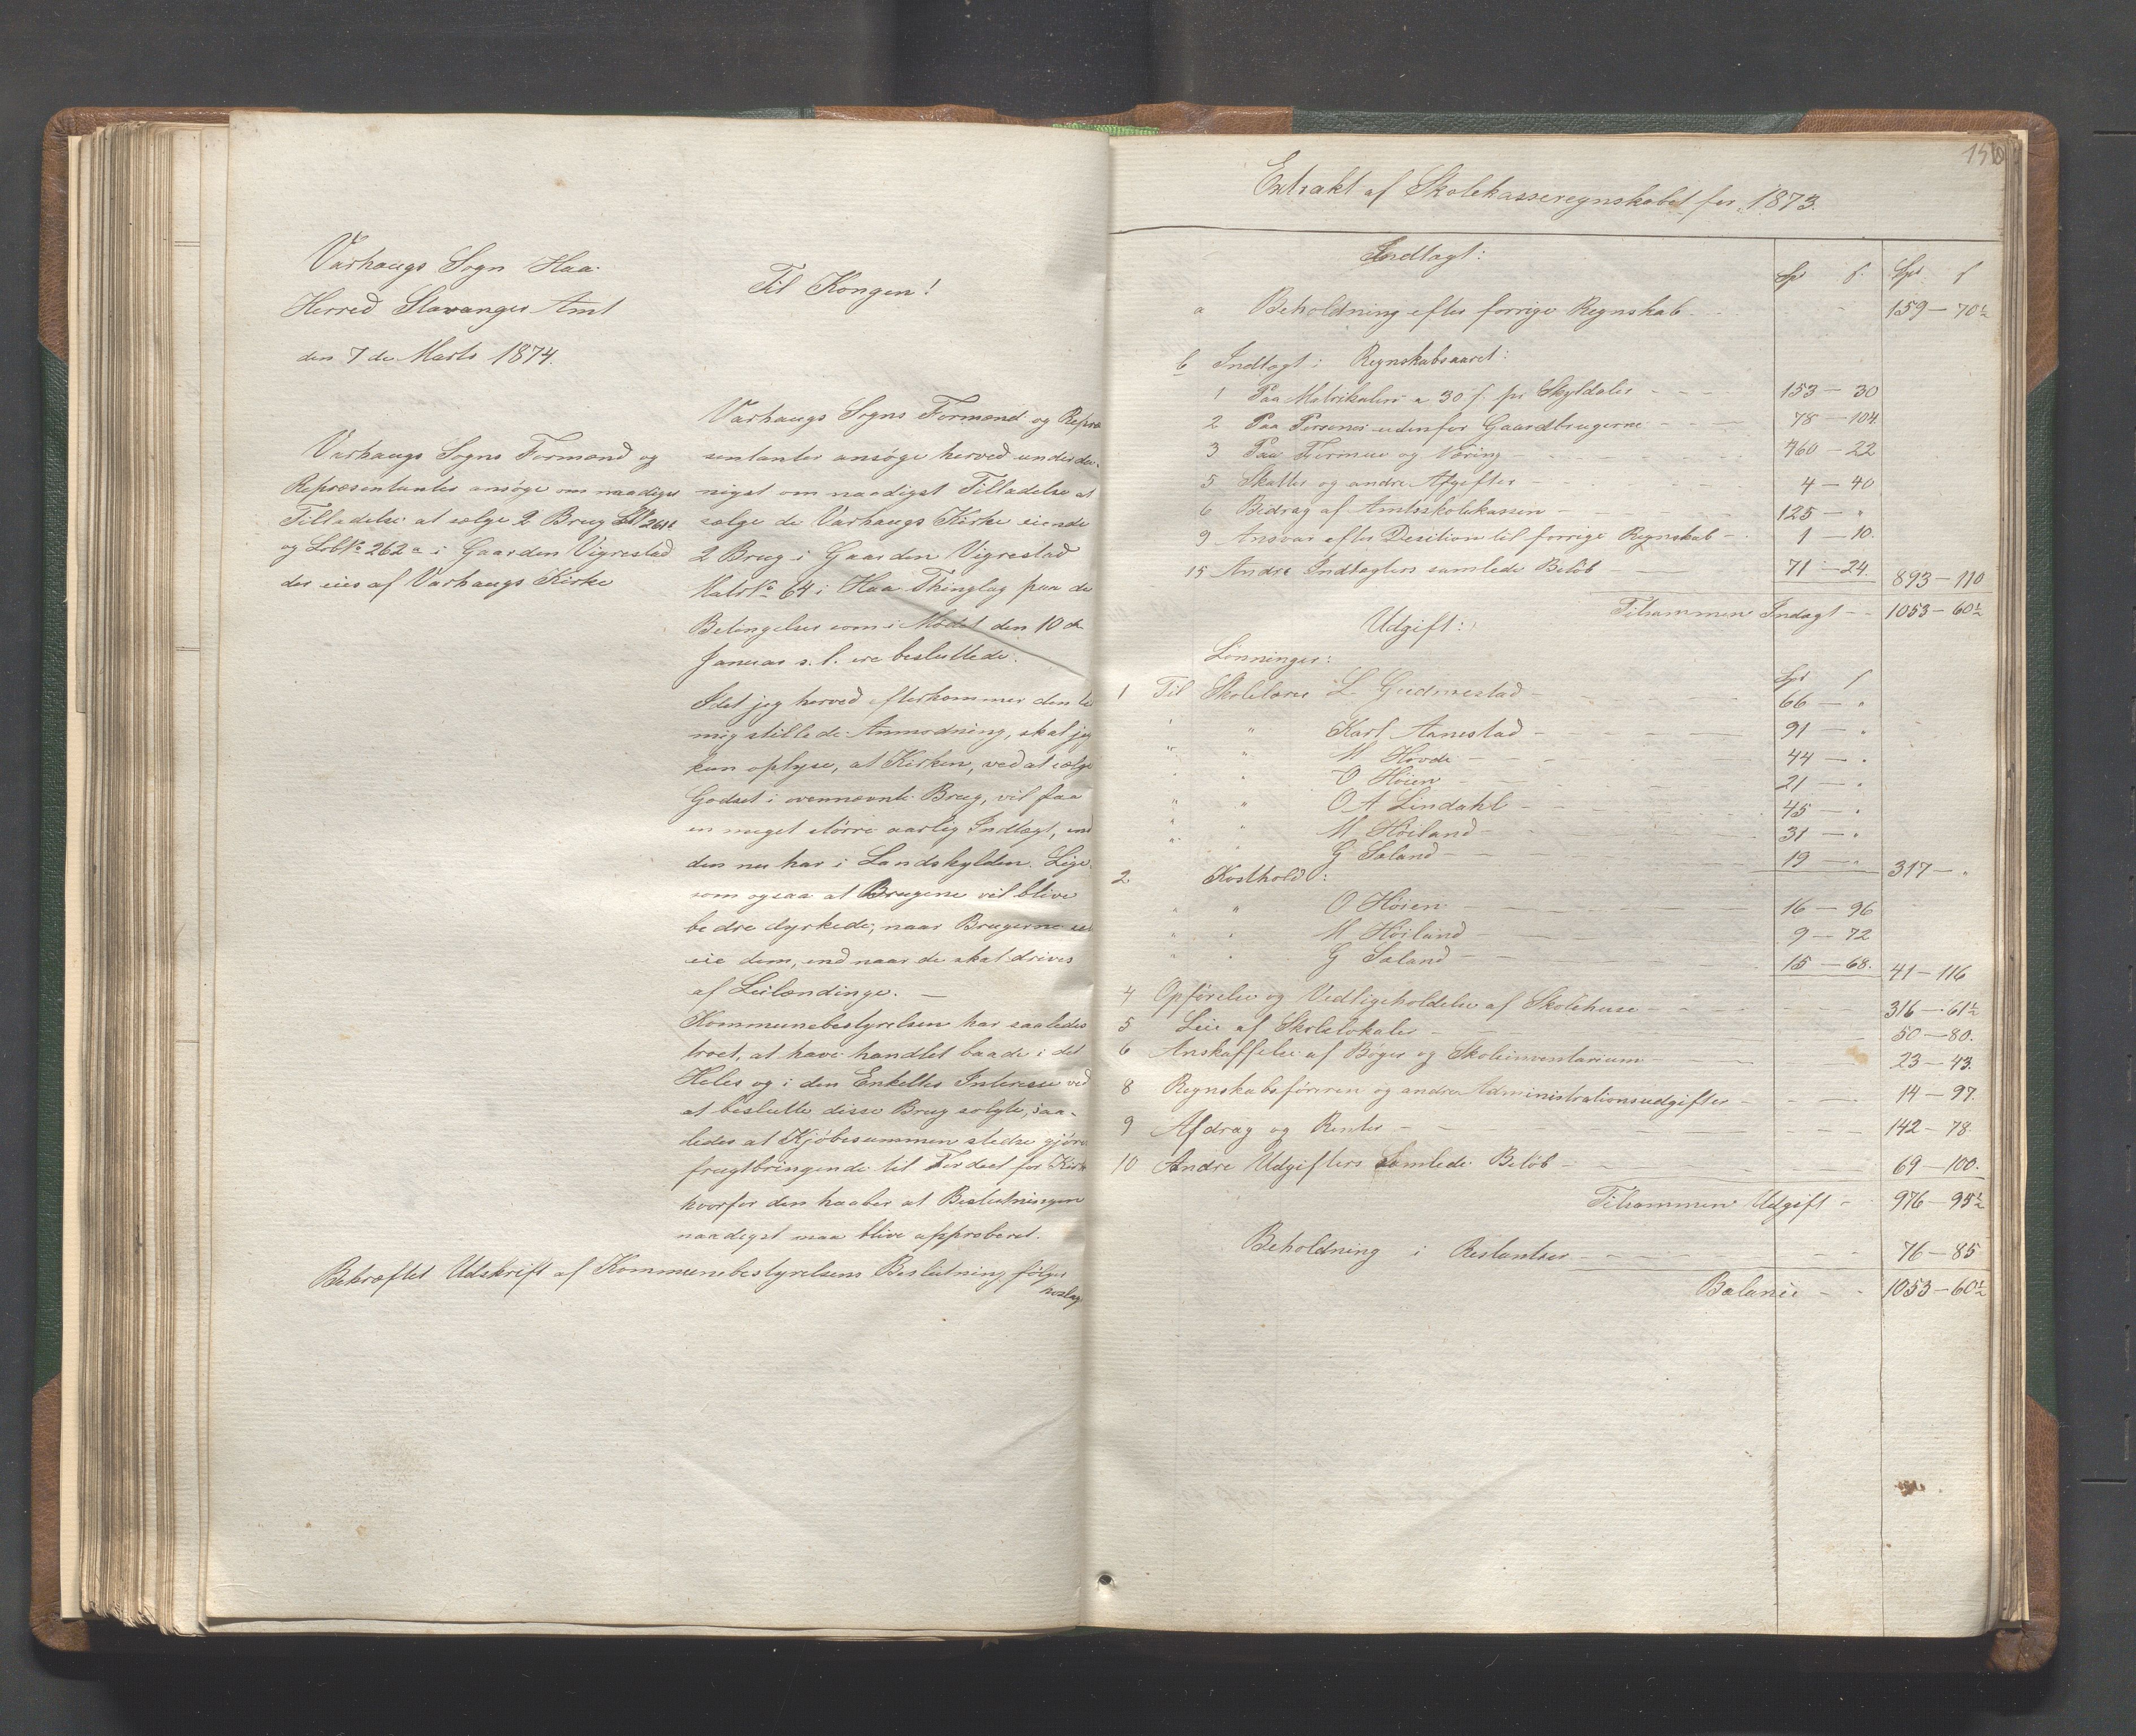 Varhaugs Sogn Haa
Herred Stavanger Amt
den 7de Marts 1874.
Varhaugs Sogns Formænd og
Repræsentanter ansöge om naadigst
Tilladelse at sælge 2 Brug LNo 261a
og LobNo 262a i Gaarden Vigrestad
der eies af Varhaugs Kirke
Til Kongen!
Varhaugs Sogns Formænd og Repræ
sentanter ansöge herved underda-
nigst om naadigst Tilladelse at
sælge de Varhaugs Kirke eiende
2 Brug i Gaarden Vigrestad
MatrNo 64 i Haa Thinglag paa de
Betingelser som i Mödet den 10de
Januar s. l. ere besluttede.
Idet jeg herved efterkommer den til
mig stillede Anmodning, skal jeg
kun oplyse, at Kirken, ved at sælge
Godset i ovennævnte Brug, vil faa
en meget större aarlig Indtægt, end
den nu har i Landskylden. Lige-
som ogsaa at Brugene vil blive
bedre dyrkede, naar Brugerne
eie dem, end naar de skal drives
af Leilændinge. —
Kommunebestyrelsen har saaledes
troet, at have handlet baade i det
Heles og i den Enkeltes Interesse ved
at beslutte disse Brug solgte, saa-
ledes at Kjöbesummen stedse gjöres
frugtbringende til Fordeel for Kirken
hvorfor den haaber at Beslutningen
naadigst maa blive approberet.
Bekræftet Udskrift af Kommunebestyrelsens Beslutning fölger
vedlagt
150
Extrakt af Skolekasseregnskabet for 1873.
Indtægt:
Spd ſ. Spd ſ
a Beholdning efter forrige Regnskab - - - 159 — 70½
b Indtægt i Regnskabsaaret:
1 Paa Matrikulen a 30 ſ. pr Skylddaler - - - 153 — 30
2 Paa Personer udenfor Gaardbrugerne - - - 78 — 104
3 Paa Formue og Næring - - - 460 — 22
5 Skatter og andre Afgifter - - - 4 — 40
6 Bidrag af Amtsskolekassen - - - 125 — "
9 Ansvar efter Desition til forrige Regnskab - - 1 — 10.
15 Andre Indtægters samlede Belöb - - - 71 — 24. 893 — 110
Tilsammen Indtægt - - 1053 — 60½
Udgift:
Lönninger: Spd ſ
1 Til Skolelærer L. Gudmestad - - - 66 — "
" " Karl Aanestad - - - 91 — "
" " M Hovde - - - 44 — "
" " O Höien - - - 21 — "
" " O A Lindahl - - - 45 — "
" " M Höiland - - - 31 — "
" " G Saland - - - 19 — " 317 — "
2 Kosthold:
" " O Höien - - - 16 — 96
" " M Höiland - - - 9 — 72
" " G Saland - - - 15 — 68. 41 — 116
4 Opförelse og Vedligeholdelse af Skolehuse - - - 316 — 61½
5 Leie af Skolelokaler - - - 50 — 80.
6 Anskaffelse af Böger og Skoleinventarium - - - 23 — 43.
8 Regnskabsföreren og andre Administrationsudgifter - - - 14 — 97.
9 Afdrag og Renter - - - 142 — 78.
10 Andre Udgifters Samlede Belöb - - - 69 — 100.
Tilsammen Udgift - 976 — 95½
Beholdning i Restantser - - - 76 — 85
Balance - - 1053 — 60½